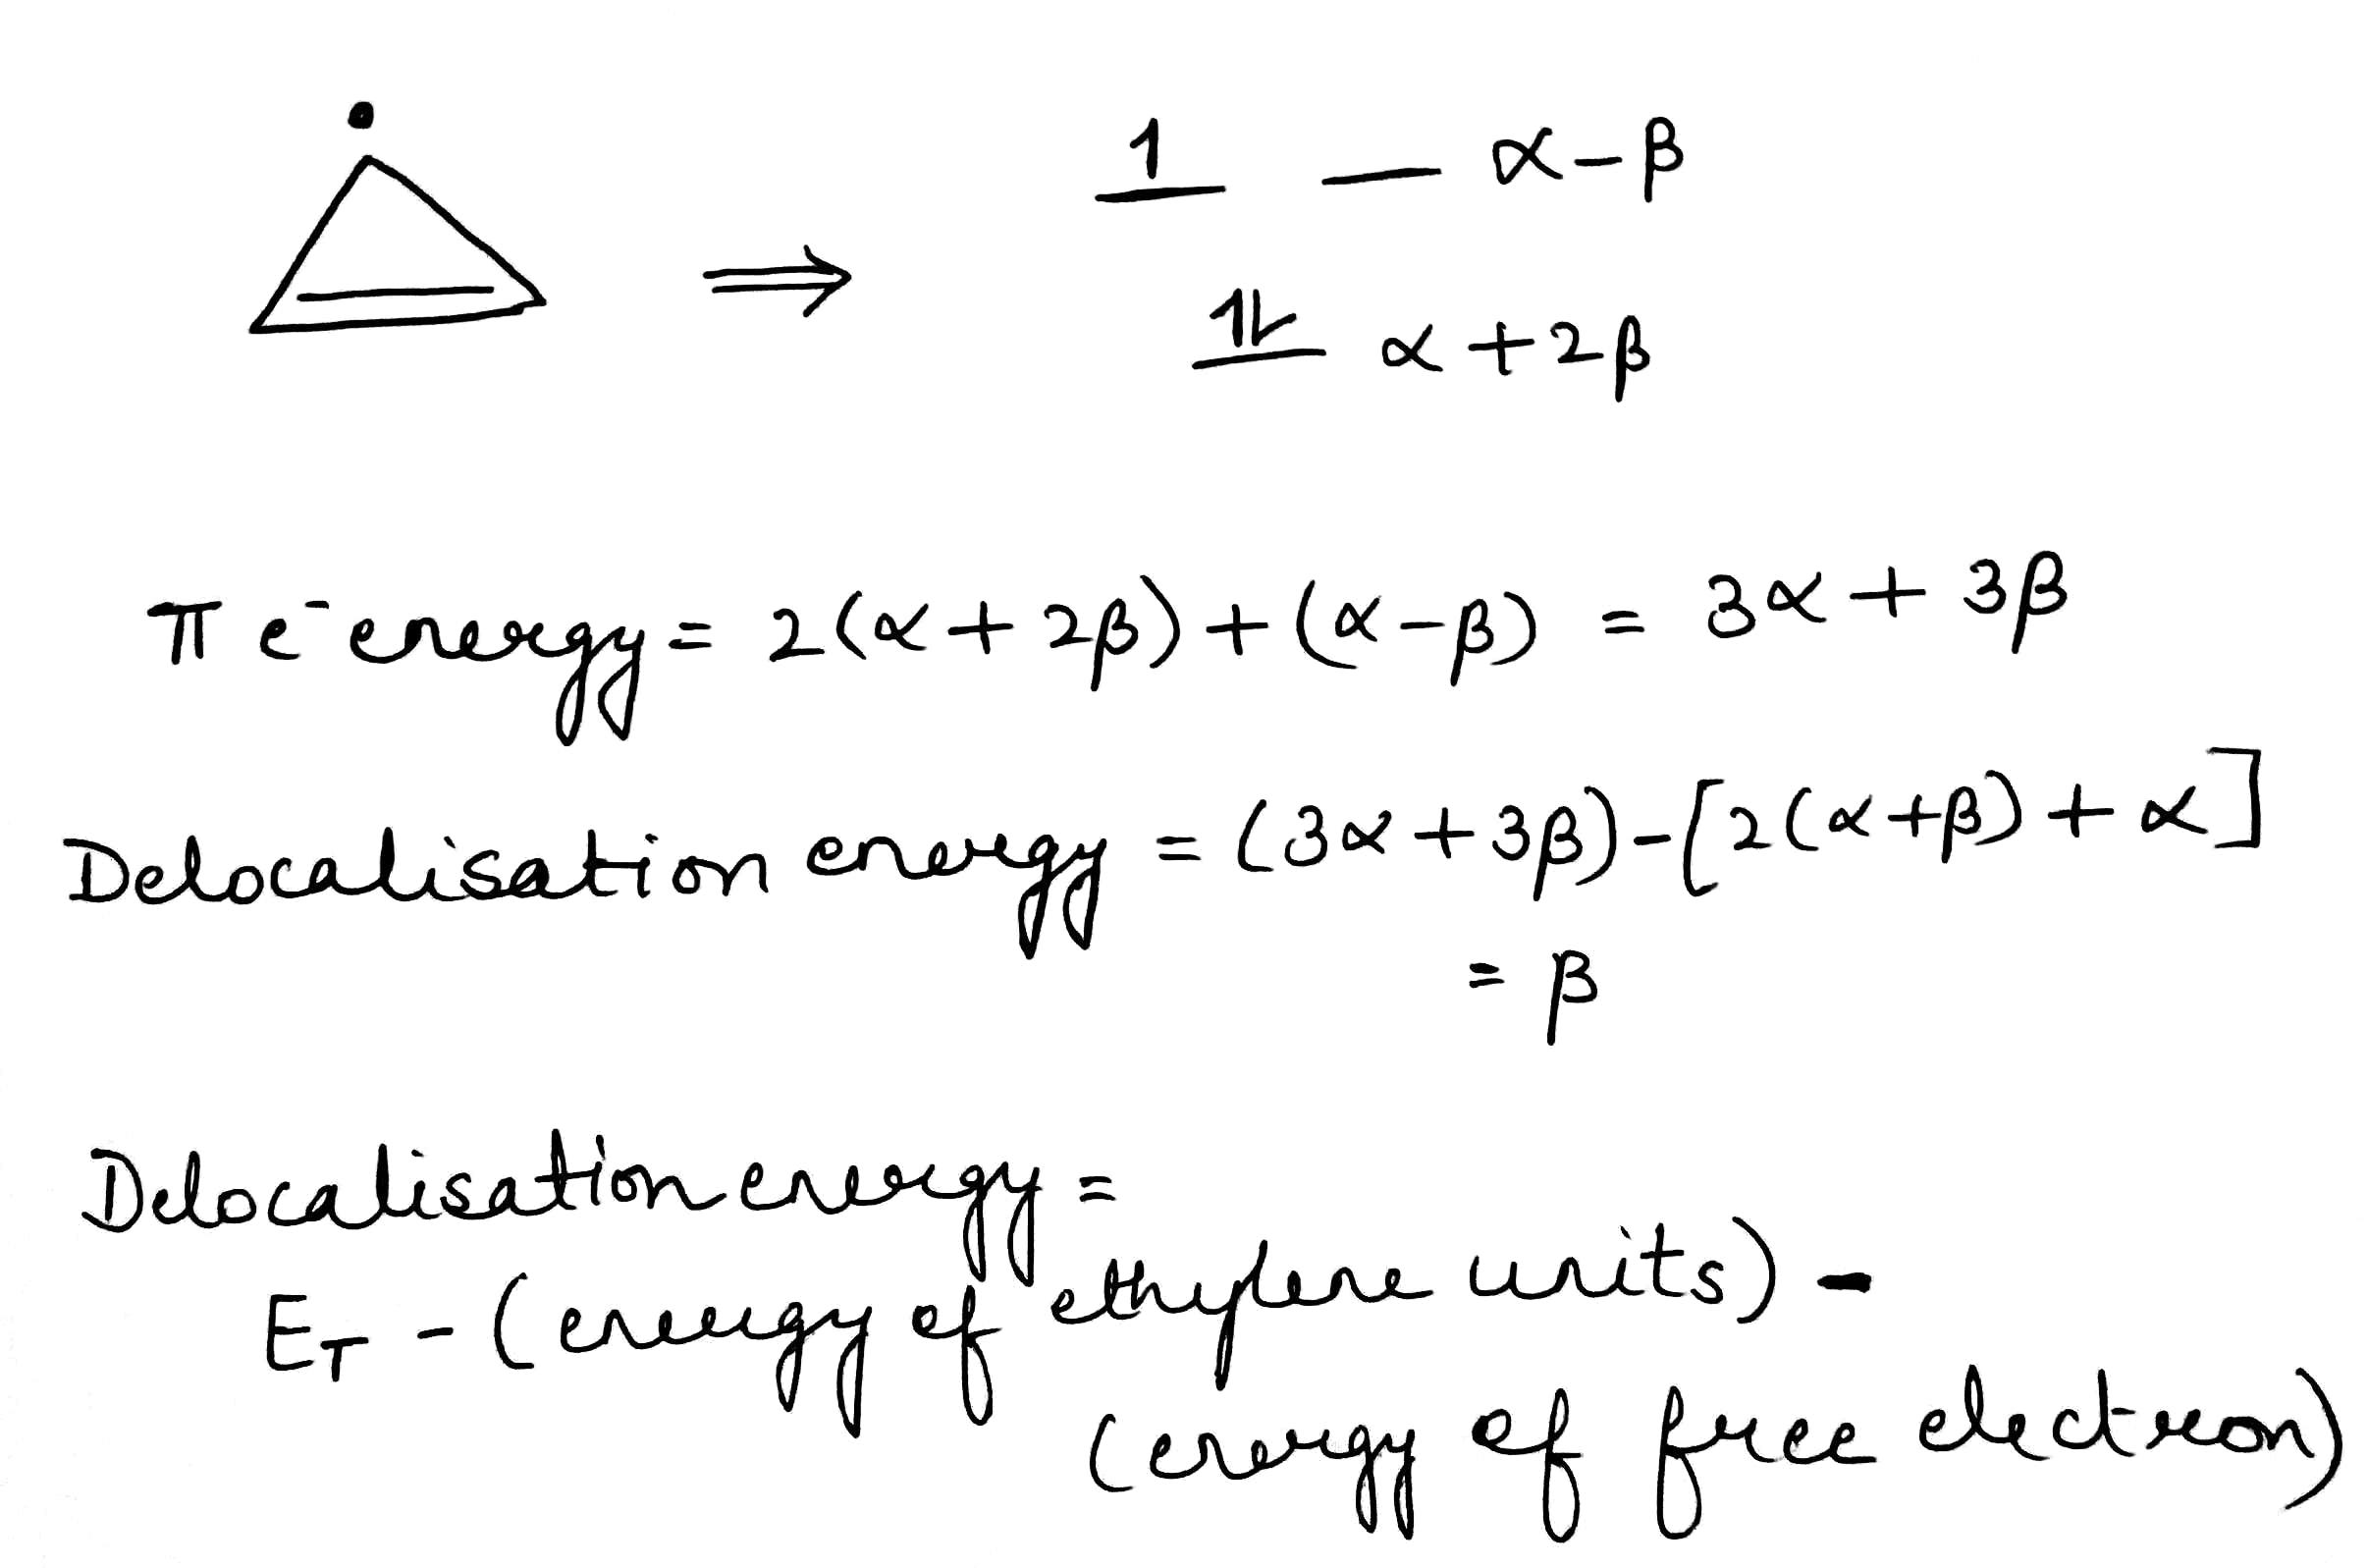 1 — α-β
⇒
1L α+2β
π e⁻ energy = 2(α+2β)+(α-β) = 3α+3β
Delocalisation energy = (3α+3β)-[2(α+β)+α]
= β
Delocalisation energy =
E_T - (energy of ethylene units) -
(energy of free electron)